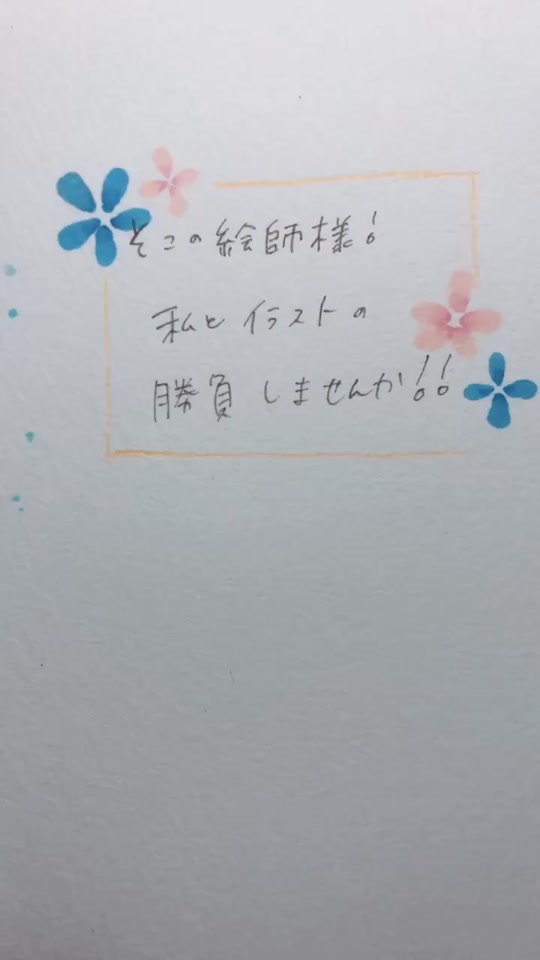 そこの絵師様!
私とイラストの
勝負しませんか!!